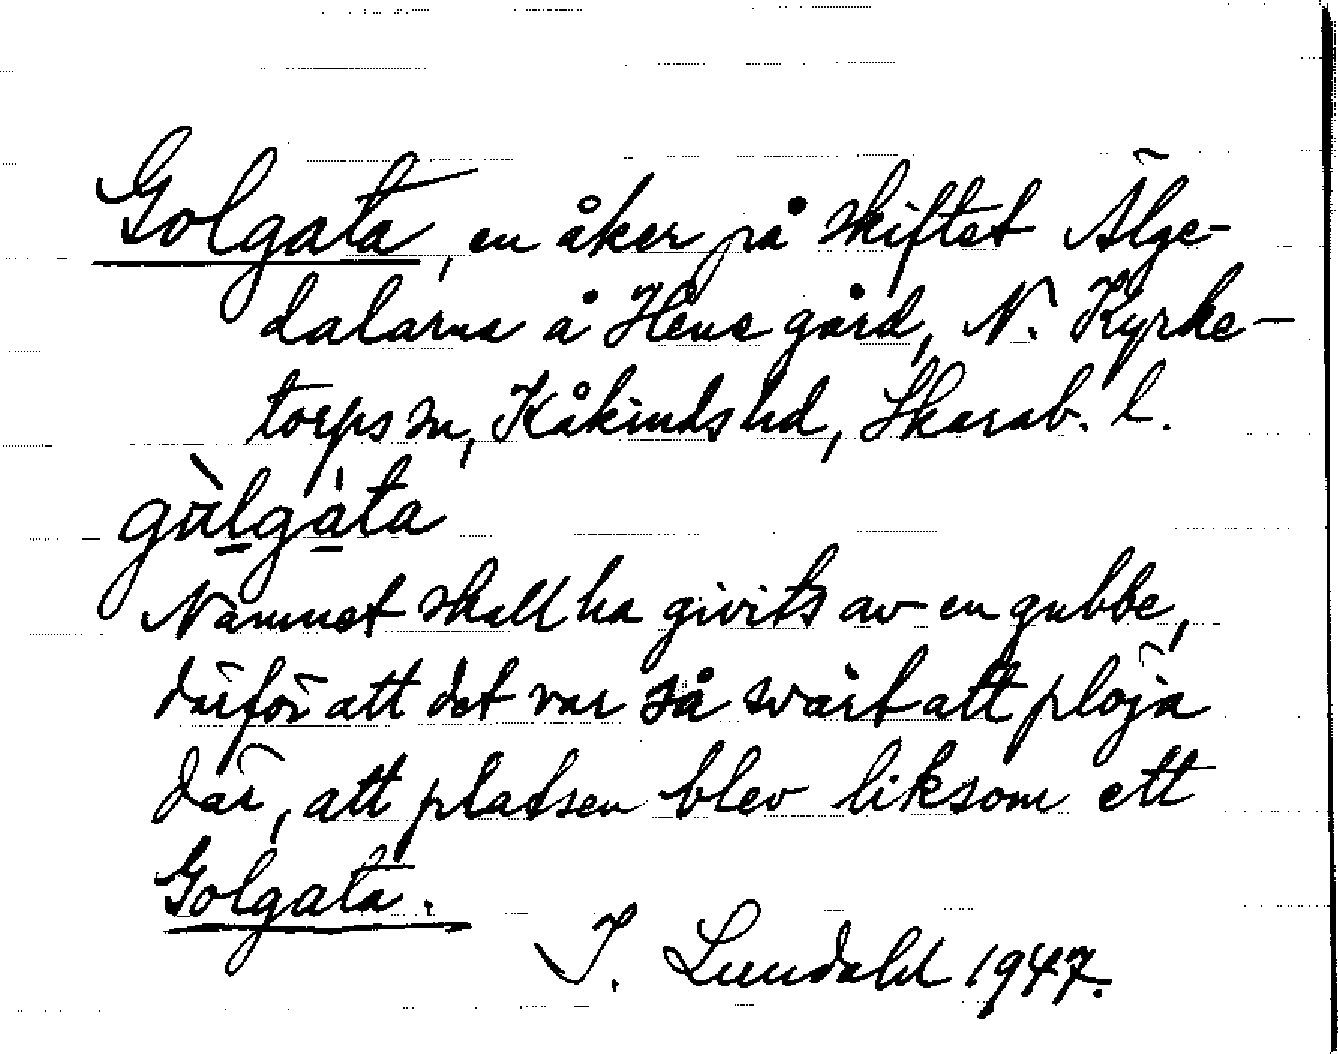 Golgata, en åker på skiftet Älge-
dalarna å Hene gård, N. Kyrke-
torps sn, Kåkinds hd, Skarab. l.
gùlgàta
Namnet skall ha givits av en gubbe,
därför att det var så svårt att plöja
där, att platsen blev liksom ett
Golgata.
I. Lundahl 1947.